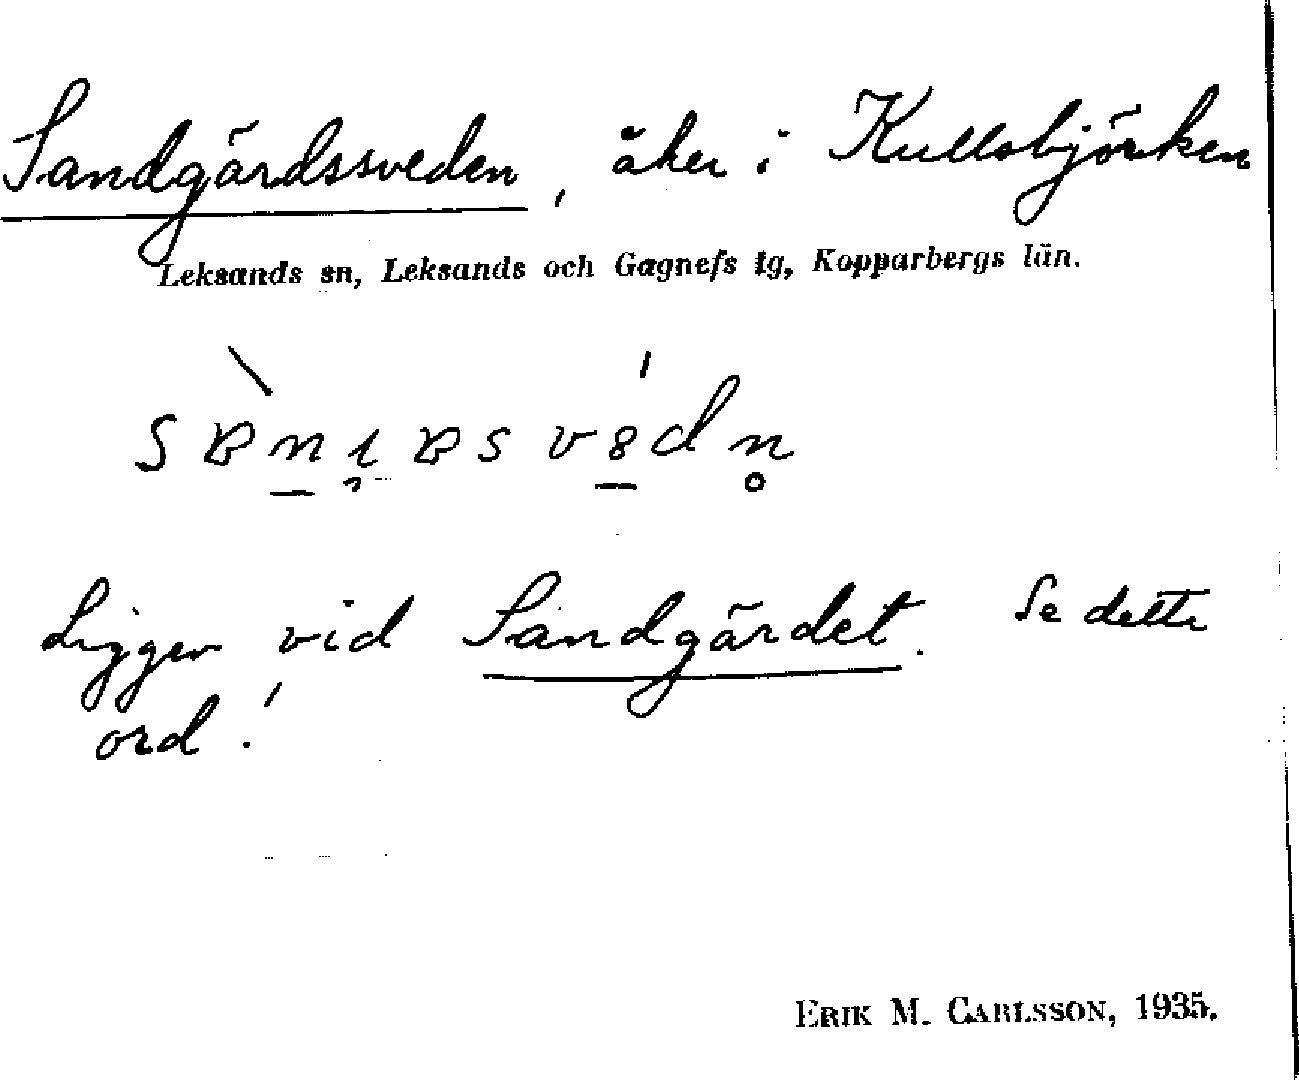 Sandgärdssveden, åker i Kullsbjörken
Leksands sn, Leksands och Gagnefs tg, Kopparbergs län.
Ligger vid Sandgärdet. Se detta
ord!
ERIK M. CARLSSON, 1935.